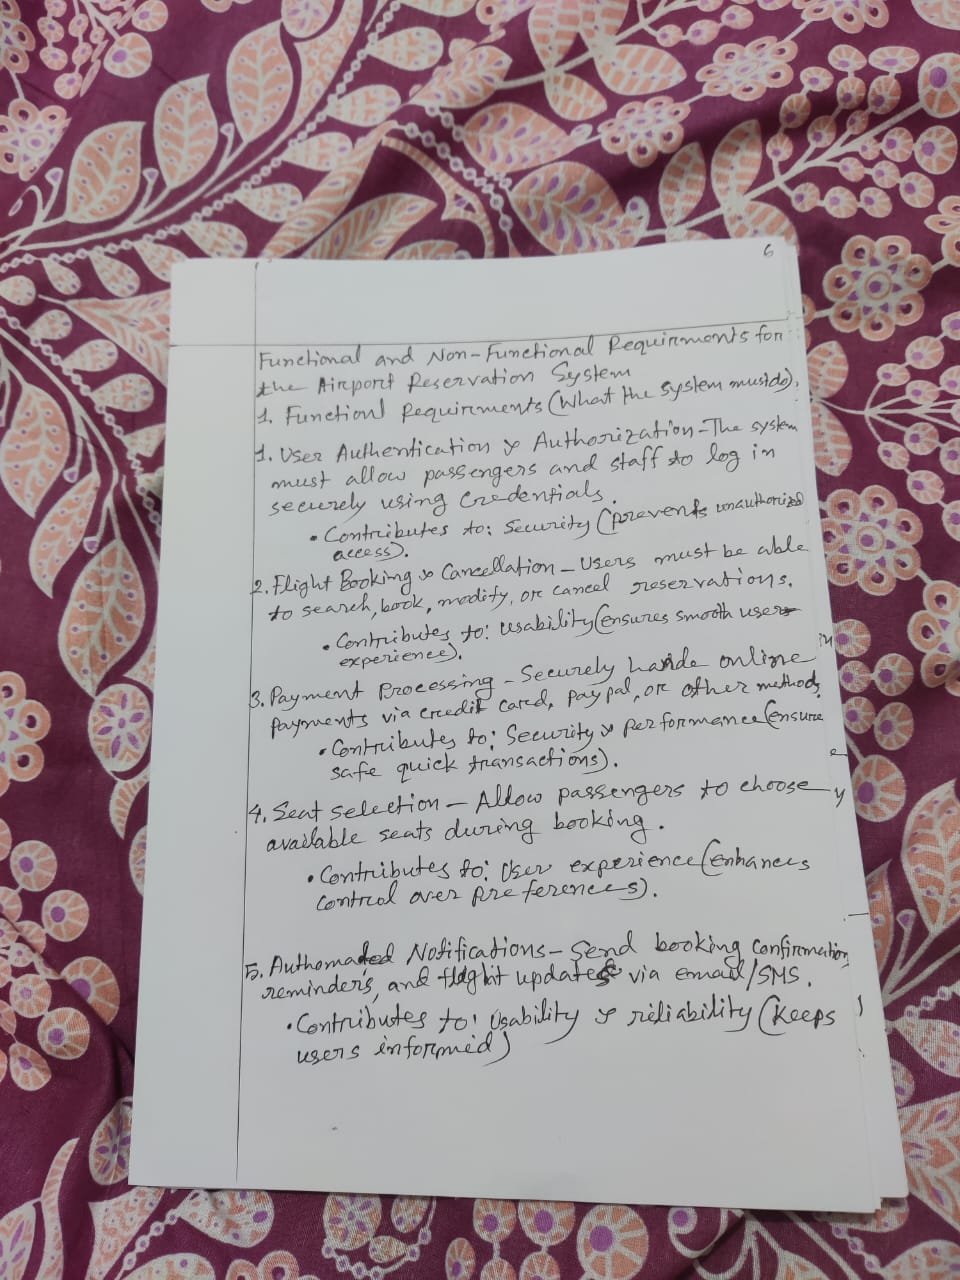 6
Functional and Non-Functional Requirments for
the Airport Reservation System
1. Functionl Requirments (What the system must do).
1. User Authentication & Authorization - The system
must allow passengers and staff to log in
securely using Credentials.
• Contributes to: Security (prevents unauthorized
access).
2. Flight Booking & Cancellation - Users must be able
to search, book, modify, or cancel reservations.
• Contributes to: Usability (ensures smooth user
experience).
3. Payment Processing - Securely hande online
payments via credit card, paypal, or other methods.
• Contributes to: Security & performance (ensure
safe quick transactions).
4. Seat selection - Allow passengers to choose
available seats during booking.
• Contributes to: User experience (Enhances
control over preferences).
5. Authomated Notifications - Send booking confirmation,
reminders, and flight updates via email/SMS.
• Contributes to: Usability & reliability (Keeps
users informed)